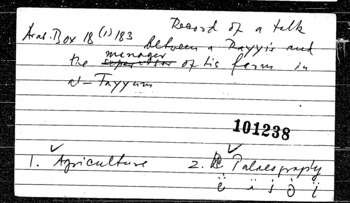 Arab. Box 18 (1) 183 Record of a talk
between a Rayyis and
the manager of his farm in
al-Fayyum
101238
1. Agriculture 2. Palaeography